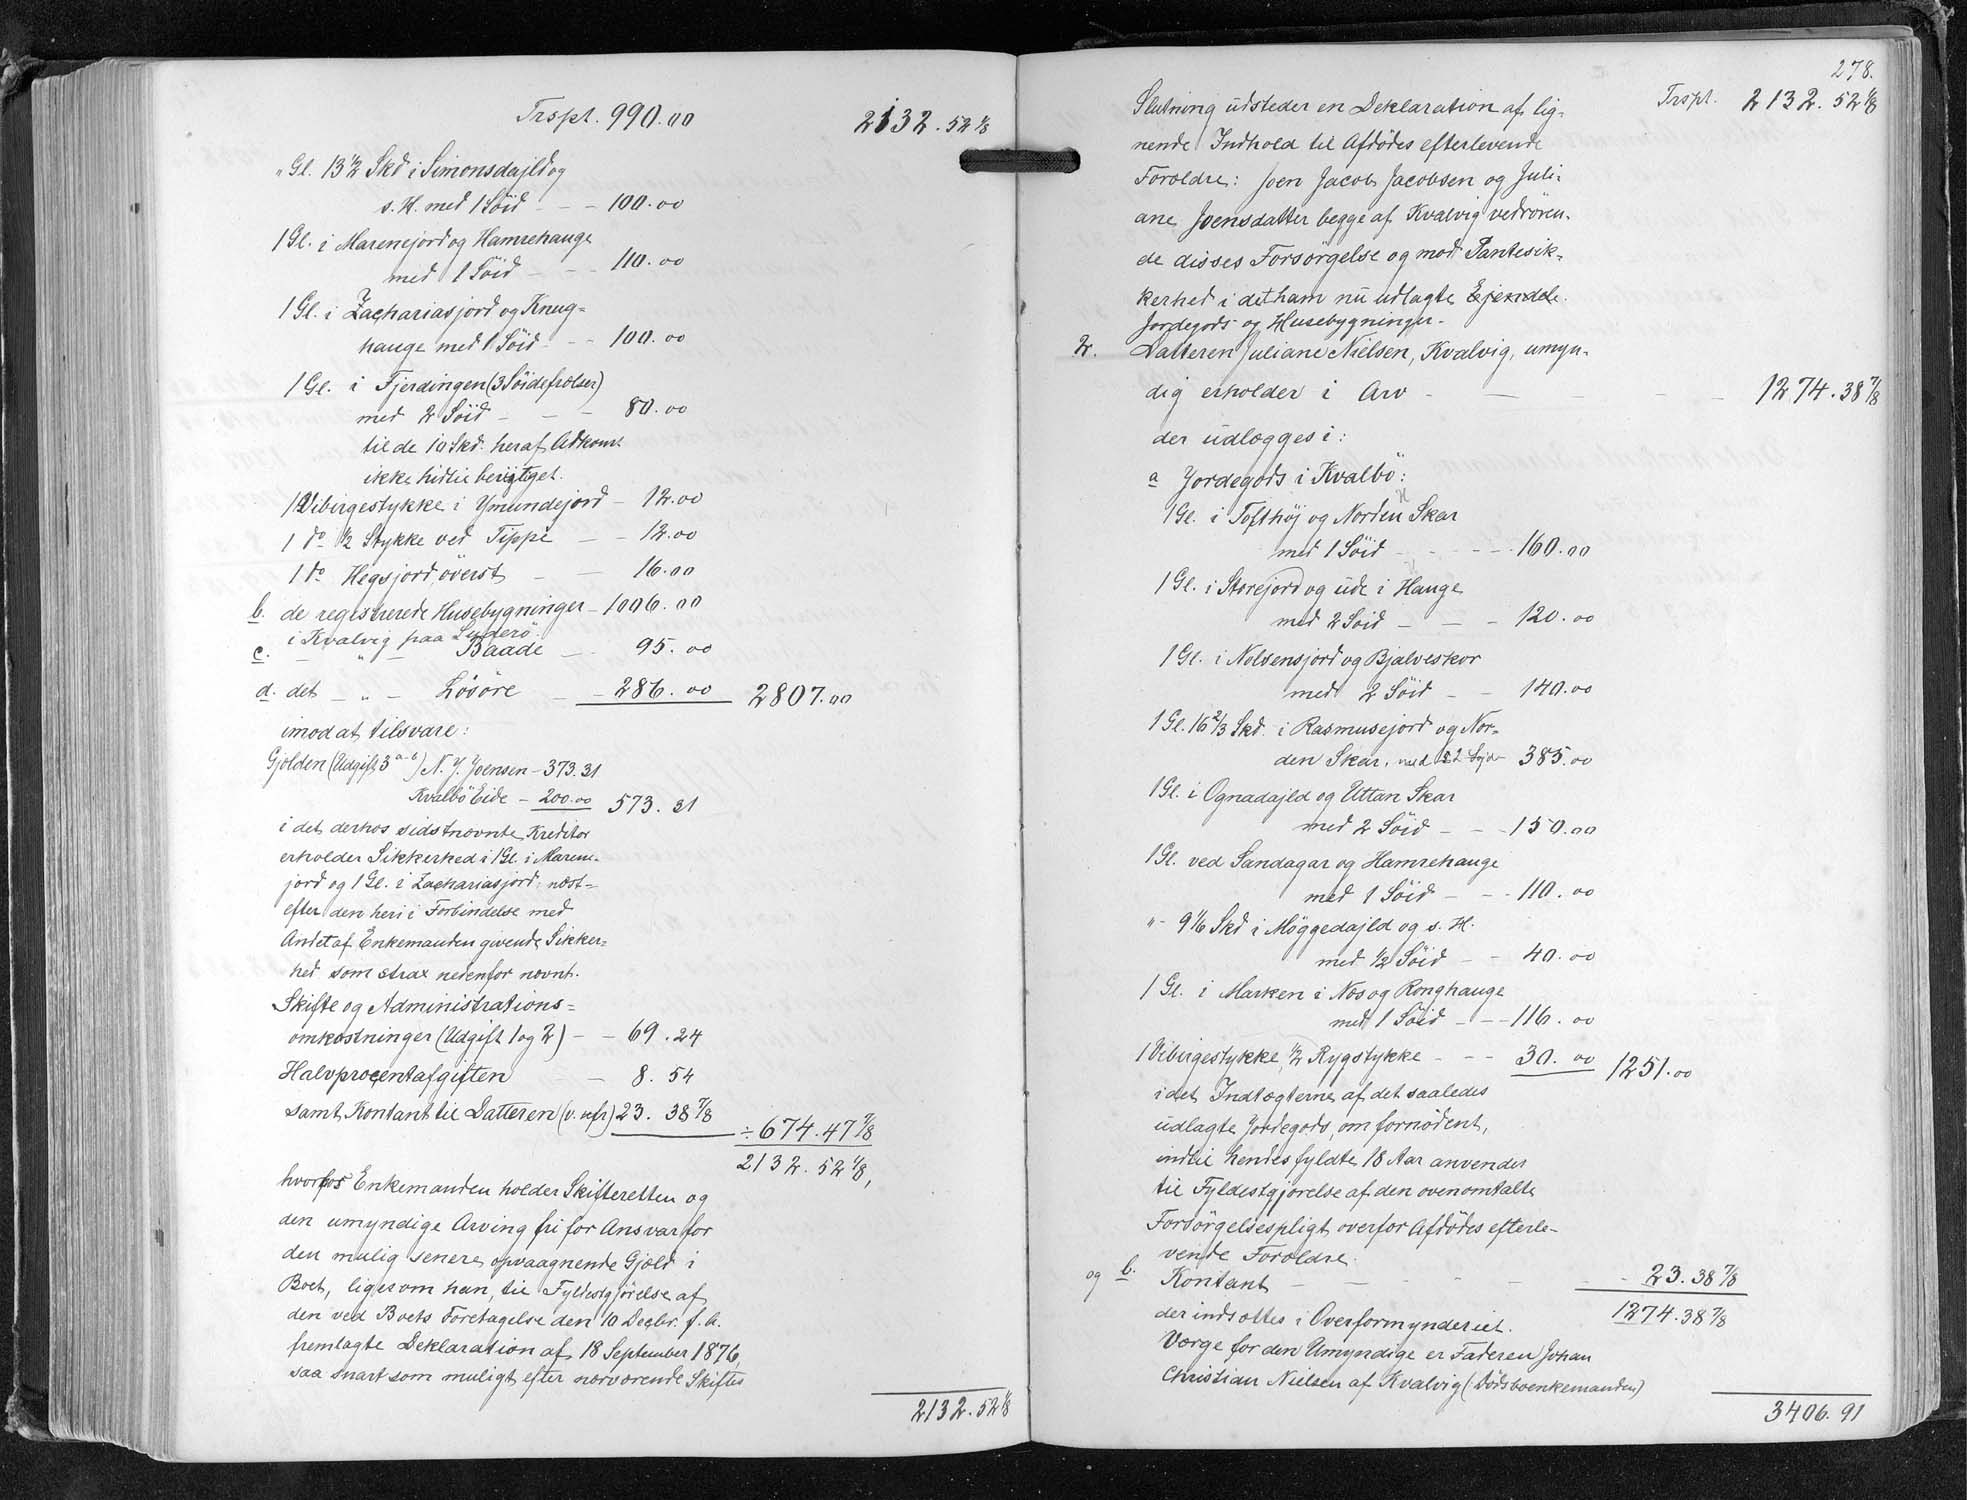 Trspt. 990.00 2132.52 1/8
" Gl. 13 1/2 Skd i Simonsdajld og
s. H. med 1 Söid - - - 100.00
1 Gl. i Marenejord og Hamrehauge
med 1 Söid - - - 110.00
1 Gl. i Zachariasjord og Knug=
hauge med 1 Söid - - 100.00
1 Gl. i Fjerdingen (3 Söidefrælser)
med 2 Söid - - - 80.00
til de 10 Skd. heraf Adkomst
ikke hidtil berigtiget.
1 Vibirgestykke i Ymundejord - 12.00
1 do 1/2 Stykke ved Tippe - - 12.00
1 do Hegsjord, överst - - 16.00
b. de registrerede Husebygninger - 1006.00
i Kvalvig paa Suderö
c. - " - Baade - 95.00
d. det - " - Lösöre - - 286.00 2807.00
imod at tilsvare:
Gjælden (Udgift 3 a-b) N. J. Joensen - 373.31
Kvalbö Eide - 200.00 573.31
i det derhos sidstnævnte Kreditor
erholder Sikkerhed i 1 Gl. i Marene-
jord og 1 Gl. i Zachariasjord: næst=
efter den heri i Forbindelse med
Andet af Enkemanden givende Sikker=
hed som strax nedenfor nævnt.
Skifte og Administrations=
omkostninger (Udgift 1 og 2) - - 69.24
Halvprocentafgiften - 8.54
samt Kontant til Datteren (v. nfr) 23. 38 7/8
÷ 674.47 7/8
2132.52 1/8,
hvorfor Enkemanden holder Skifteretten og
den umyndige Arving fri for Ansvar for
den mulig senere opvaagnende Gjæld i
Boet, ligesom han, til Fyldestgjörelse af
den ved Boets Foretagelse den 10 Decbr. f. A.
fremlagte Deklaration af 18 September 1876,
saa snart som muligt efter nærværende Skiftes
2132.52 1/8
278.
Trspt. 2132.52 1/8
Slutning udsteder en Deklaration af lig=
nende Indhold til Afdödes efterlevende
Forældre: Joen Jacob Jacobsen og Juli=
ane Joensdatter begge af Kvalvig vedrören=
de disses Forsörgelse og mod Pantesik=
kerhed i det ham nu udlagte Ejendele
Jordegods og Husebygninger.
2. Datteren Juliane Nielsen, Kvalvig, umyn=
dig erholder i Arv - - - - - 1274.38 7/8
der udlægges i:
a Jordegods i Kvalbö:
1 Gl. i Tofthöj og Norden Skar
med 1 Söid - - - - 160.00
1 Gl. i Storejord og ude i Hauge
med 2 Söid - - - 120.00
1 Gl. i Nolsensjord og Bjalveskor
med 2 Söid - - 140.00
1 Gl. 16 2/3 Skd. i Rasmusejord og Nor=
den Skar, med 2 Söjde 385.00
1 Gl. i Ognadajld og Uttan Skar
med 2 Söid - - - 150.00
1 Gl. ved Sandagar og Hamrehauge
med 1 Söid - - - 110.00
" - 9 1/6 Skd i Möggedajld og s. H.
med 1/2 Söid - - 40.00
1 Gl. i Marken i Næs og Ronghauge
med 1 Söid - - - 116.00
1 Vibirgestykke, 1/2 Rygstykke - - - 30.00 1251.00
i det Indtægterne af det saaledes
udlagte Jordegods, om fornödent,
indtil hendes fyldte 18 Aar anvendes
til Fyldestgjörelse af den ovenomtalte
Forsörgelsespligt overfor Afdödes efterle-
vende Forældre.
og b. Kontant - - - - - 23.38 7/8
der indsættes i Overformynderiet. 1274.38 7/8
Værge for den Umyndige er Faderen Johan
Christian Nielsen af Kvalvig (Dödsboenkemanden)
3406.91